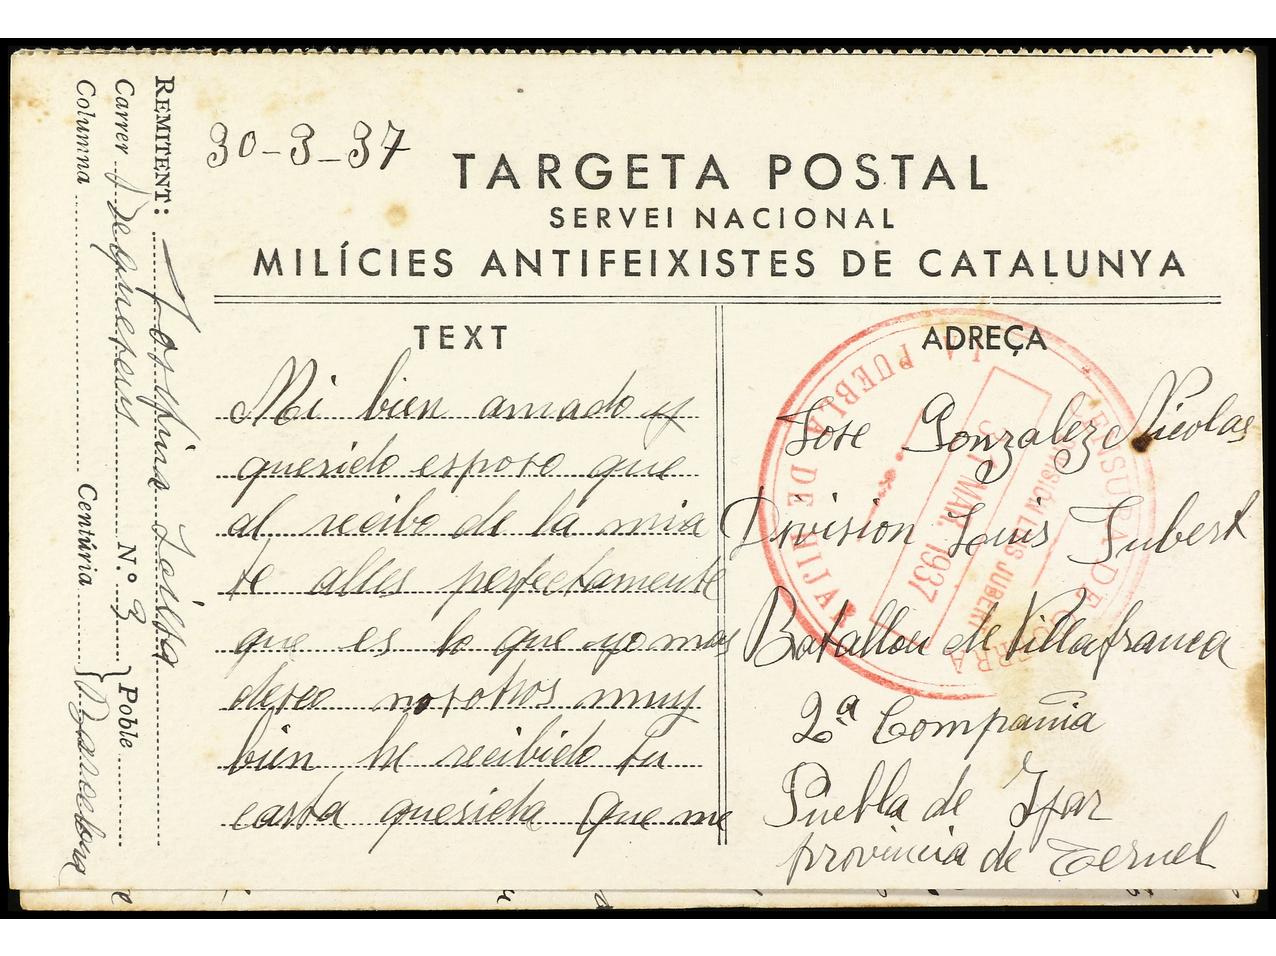 30-3-37
TARGETA POSTAL
SERVEI NACIONAL
MILÍCIES ANTIFEIXISTES DE CATALUNYA
REMITENT: Josefina
Carrer N.º 3
Columna Centúria
Poble Barcelona
TEXT
Mi bien amado y
querido esposo que
al recibo de la mia
te alles perfectamente
que es lo que yo mas
deseo nosotros muy
bien he recibido tu
carta querida que me
ADREÇA
Jose Gonzalez Nicolas
Division Luis Jubert
Batallon de Villafranca
2ª Compañia
Puebla de Ijar
provincia de Teruel
CENSURA DE GUERRA
DIVISIÓN LUIS JUBERT
31 MAR. 1937
LA PUEBLA DE HIJAR